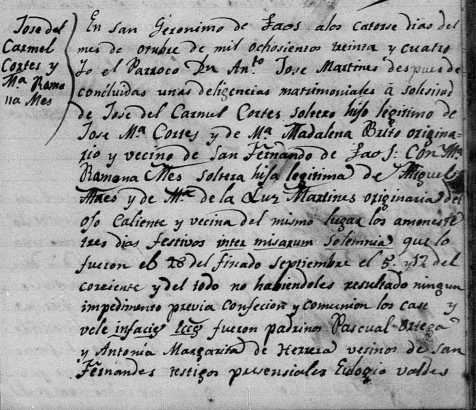 Jose del
Carmel
Cortes y
Mª Ramo
na Mes
En San Geronimo de Taos a los catorse dias del
mes de otubre de mil ochosientos treinta y cuatro
Yo el Parroco Dn Anto Jose Martines despues de
concluidas unas deligencias matrimoniales á solisitud
de Jose del Carmel Cortes soltero hijo legitimo de
Jose Mª Cortes y de Mª Madalena Brito origina
rio y vecino de San Fernando de Taos: Con Mª
Ramona Mes soltera hija legitima de Miguel
Maes y de Mª de la Luz Martines originaria del
ojo Caliente y vecina del mismo lugar los amonesté
tres dias festivos inter misarum Solemnia que lo
fueron el 28 del finado Septiembre el 5. y 12 del
corriente y del todo no habiendoles resultado ningun
impedimento previa Confecion y comunion los case y
vele infacie fueron padrinos Pascual Ortega
y Antonia Margarita de Herrera vesinos de San
Fernandes testigos presensiales Eulogio Valdes